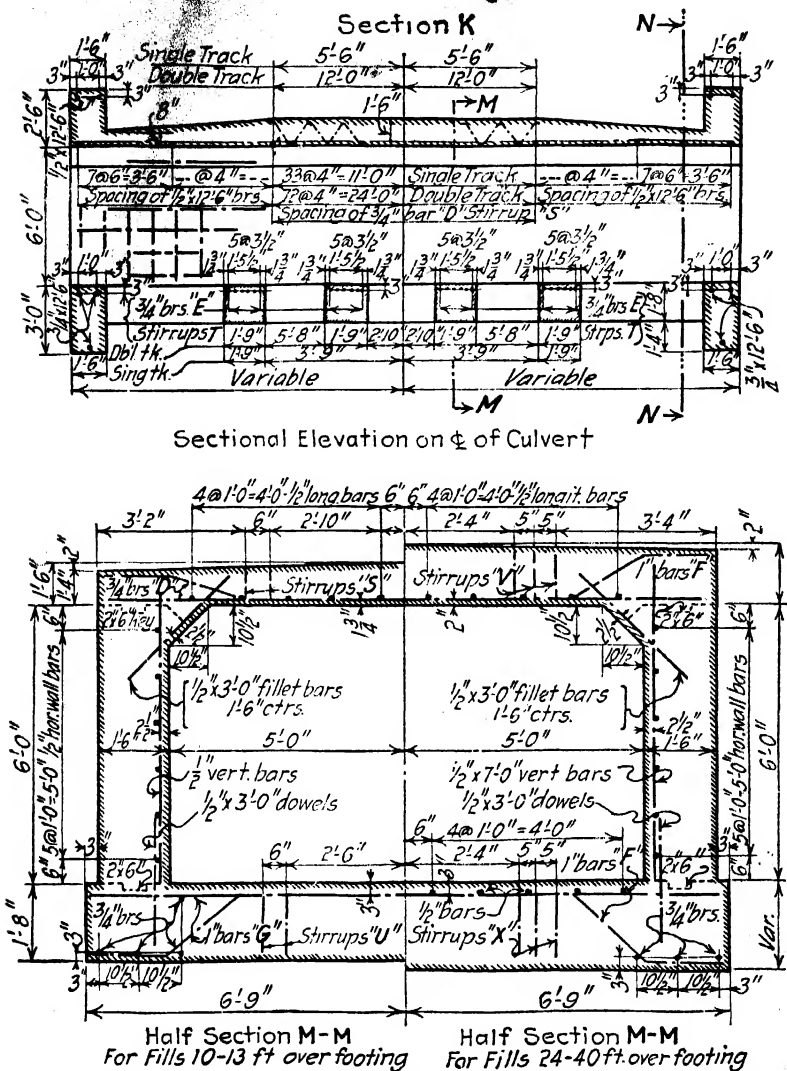 Section K
N
1'-6" Single Track 5'-6" 5'-6" 1'-6"
3" 1'-0" 3" Double Track 12'-0" 12'-0" 3" 1'-0" 3"
3" 8" 1'-6" M 3"
2'-6"
1/2" x 12'-6"
7@6"=3'-6" @4"= 33@4"=11'-0" Single Track @4"= 7@6"=3'-6"
Spacing of 1/2" x 12'-6" brs 72@4"=24'-0" Double Track Spacing of 1/2" x 12'-6" brs.
Spacing of 3/4" bar "D" Stirrup "S"
6'-0"
5@3 1/2" 5@3 1/2" 5@3 1/2" 5@3 1/2"
1 3/4" 1'-5 1/2" 1 3/4" 1 3/4" 1'-5 1/2" 1 3/4" 1 3/4" 1'-5 1/2" 1 3/4" 1 3/4" 1'-5 1/2" 1 3/4"
1'-0" 3" 3" 3" 3" 1'-0" 3"
3'-0" 3/4" x 12'-6" 3/4" brs. "E" 3/4" brs. E 1'-8"
Stirrups T 1'-9" 5'-8" 1'-9" 2'-10" 2'-10" 1'-9" 5'-8" 1'-9" Strps. T 1'-4"
1'-6" Dbl tk. 1'-9" 3'-9" 3'-9" 1'-9" 1'-6" 3/4" x 12'-6"
Sing tk.
Variable Variable
M N
Sectional Elevation on ℄ of Culvert
4@1'-0"=4'-0" 1/2" long bars 6" 6" 4@1'-0"=4'-0" 1/2" longit. bars
3'-2" 6" 2'-10" 2'-4" 5" 5" 3'-4" 2"
2" 1'-6" 1'-4" 3/4" brs "D" Stirrups "S" Stirrups "V" 1" bars "F"
6" 2"x6" key 2 1/2" 10 1/2" 1 3/4" 2" 10 1/2" 2 1/2" 2"x6" 6"
10 1/2" 10 1/2"
1/2" x 3'-0" fillet bars 1/2" x 3'-0" fillet bars
1'-6" ctrs. 1'-6" ctrs.
6'-0" 5@1'-0"=5'-0" 1/2" hor. wall bars 5@1'-0"=5'-0" hor. wall bars 6'-0"
1'-6" 2 1/2" 5'-0" 5'-0" 2 1/2" 1'-6"
1/2" vert. bars 1/2" x 7'-0" vert bars
1/2" x 3'-0" dowels 1/2" x 3'-0" dowels
3" 6" 4@1'-0"=4'-0" 3"
6" 2"x6" 6" 2'-6" 2'-4" 5" 5" 1" bars "F" 2"x6" 6"
1'-8" 3/4" brs. 3" 3" 1/2" bars 3/4" brs. Var.
1" bars "G" Stirrups "U" Stirrups "X"
3" 3" 10 1/2" 10 1/2" 3" 10 1/2" 10 1/2" 3"
6'-9" 6'-9"
Half Section M-M Half Section M-M
For Fills 10-13 ft over footing For Fills 24-40 ft. over footing